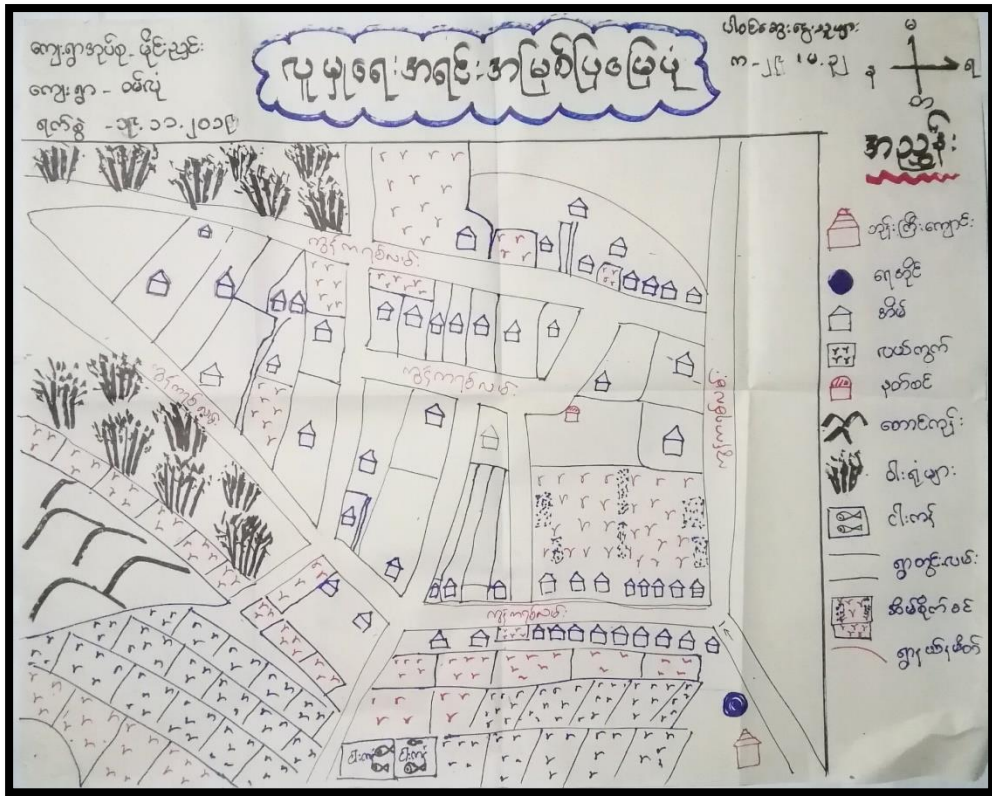 ကျေးရွာအုပ်စု - မိုင်းညှင်း
ကျေးရွာ - ဝမ်လုံ
ရက်စွဲ - ၁၉.၁၁.၂၀၁၉
လူမှုရေးအရင်းအမြစ်ပြမြေပုံ
ပါဝင်ဆွေးနွေးသူများ
က - ၂၄၊ မ - ၃၂
မ
န
ရ
တ
အညွှန်း
ဘုန်းကြီးကျောင်း
ရေတိုင်
အိမ်
လယ်ကွက်
နတ်စင်
တောင်ကုန်း
ဝါးရုံများ
ငါးကန်
ရွာတွင်းလမ်း
အိမ်စိုက်ခင်း
ရွာနယ်နမိတ်
ကွန်ကရစ်လမ်း
ကွန်ကရစ်လမ်း
ကွန်ကရစ်လမ်း
ကွန်ကရစ်လမ်း
ငါးကန်
ငါးကန်